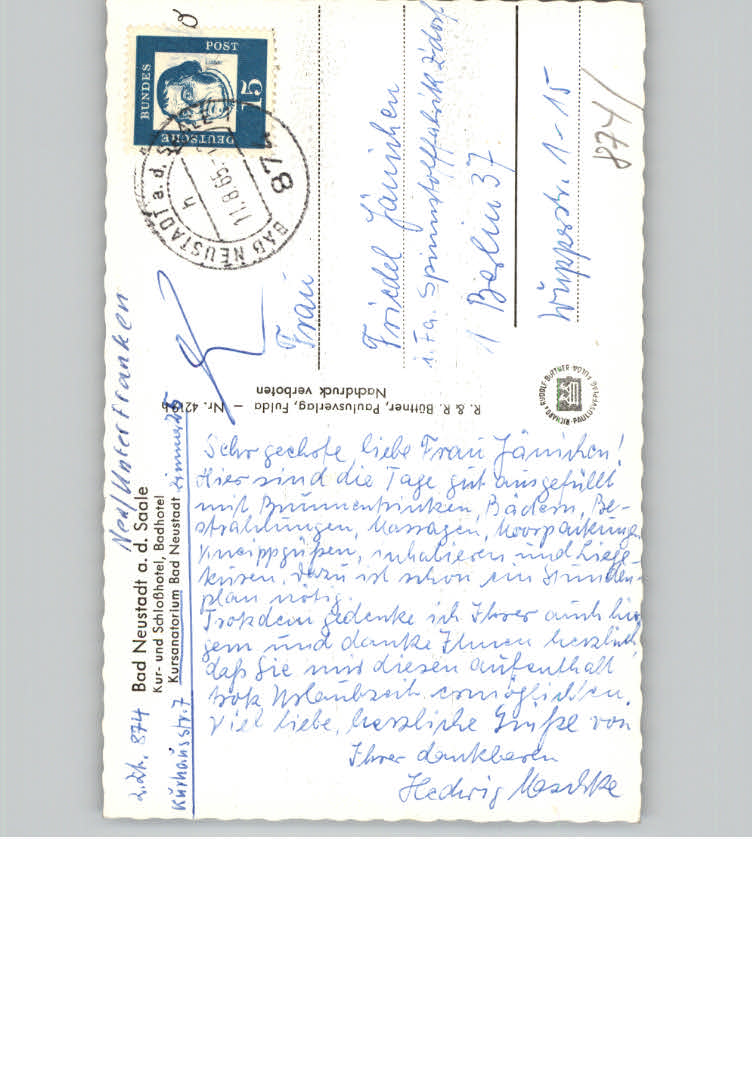 Neu/Unterfranken
Bad Neustadt a. d. Saale
Kur- und Schloßhotel, Badhotel
Kursanatorium Bad Neustadt Zimmer 26
z.Zt. 874
Kurhausstr. 7
Sehr geehrte liebe Frau Jänichen!
Hier sind die Tage gut ausgefüllt
mit Brunnentrinken, Bädern, Be-
strahlungen, Massagen, Moorpackungen
Kneippgüßen, inhalieren und Liege-
kuren, dazu ist schon ein Stunden-
plan nötig.
Trotzdem gedenke ich Ihrer auch hier
gern und danke Ihnen herzlich,
daß Sie mir diesen Aufenthalt
trotz Urlaubszeit ermöglichten.
Viel liebe, herzliche Grüße von
Ihrer dankbaren
Hedwig Maschke
R. & R. Büttner, Paulusverlag, Fulda – Nr. 4219 h
Nachdruck verboten
RICHARD & RUDOLF BÜTTNER PAULUSVERLAG FULDA
DEUTSCHE
BUNDES
POST
15
Luther
874
BAD NEUSTADT a. d. SAALE
11.8.65
h
Frau
Friedel Jänichen
i. Fa. Spinnstoffabrik Zdorf
1 Berlin 37
Wupperstr. 1-15
874/